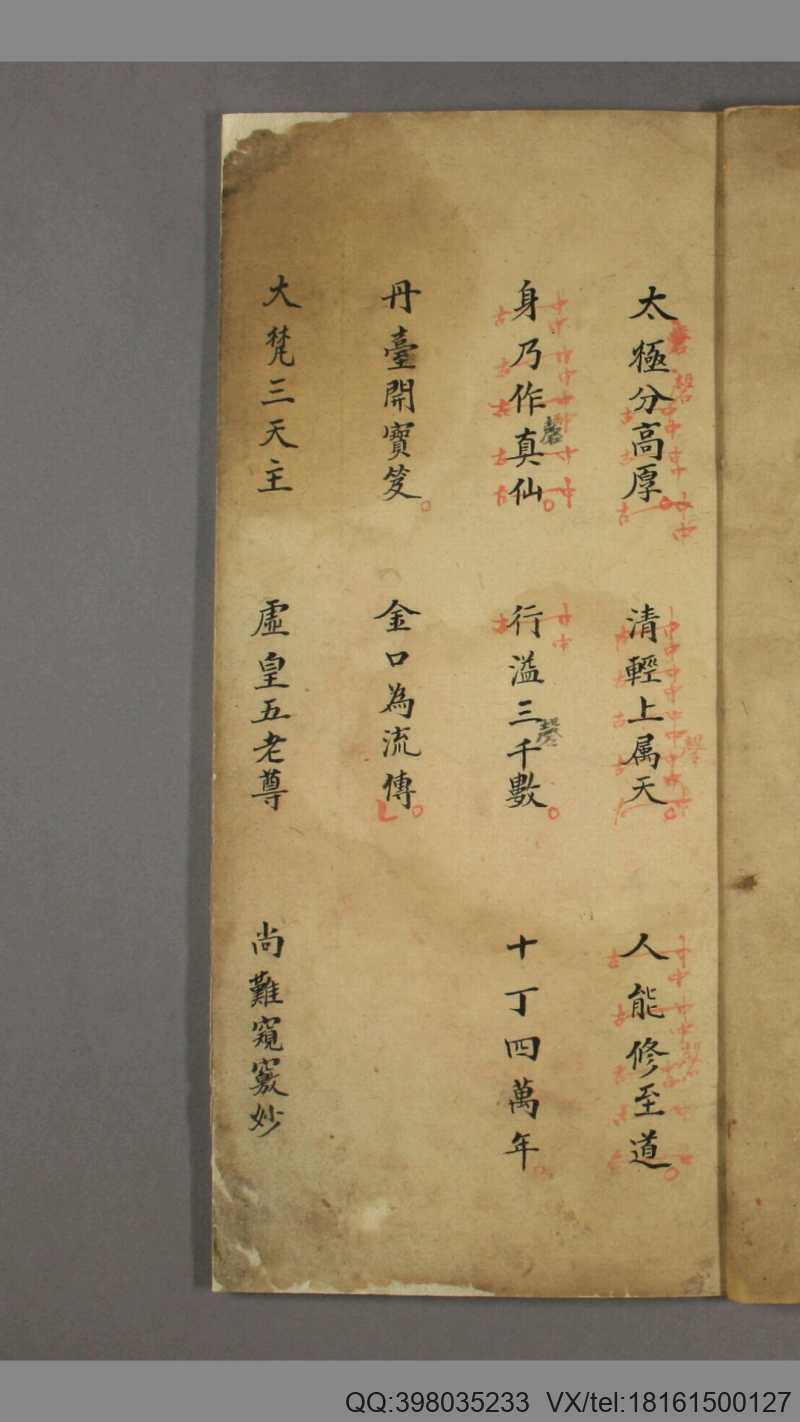 太極分高厚。清輕上属天。人能修至道。
身乃作真仙。行溢三千數。十丁四萬年。
丹臺開寶笈。金口為流傳。
大梵三天主 虛皇五老尊 尚難窺竅妙
QQ:398035233 VX/tel:18161500127